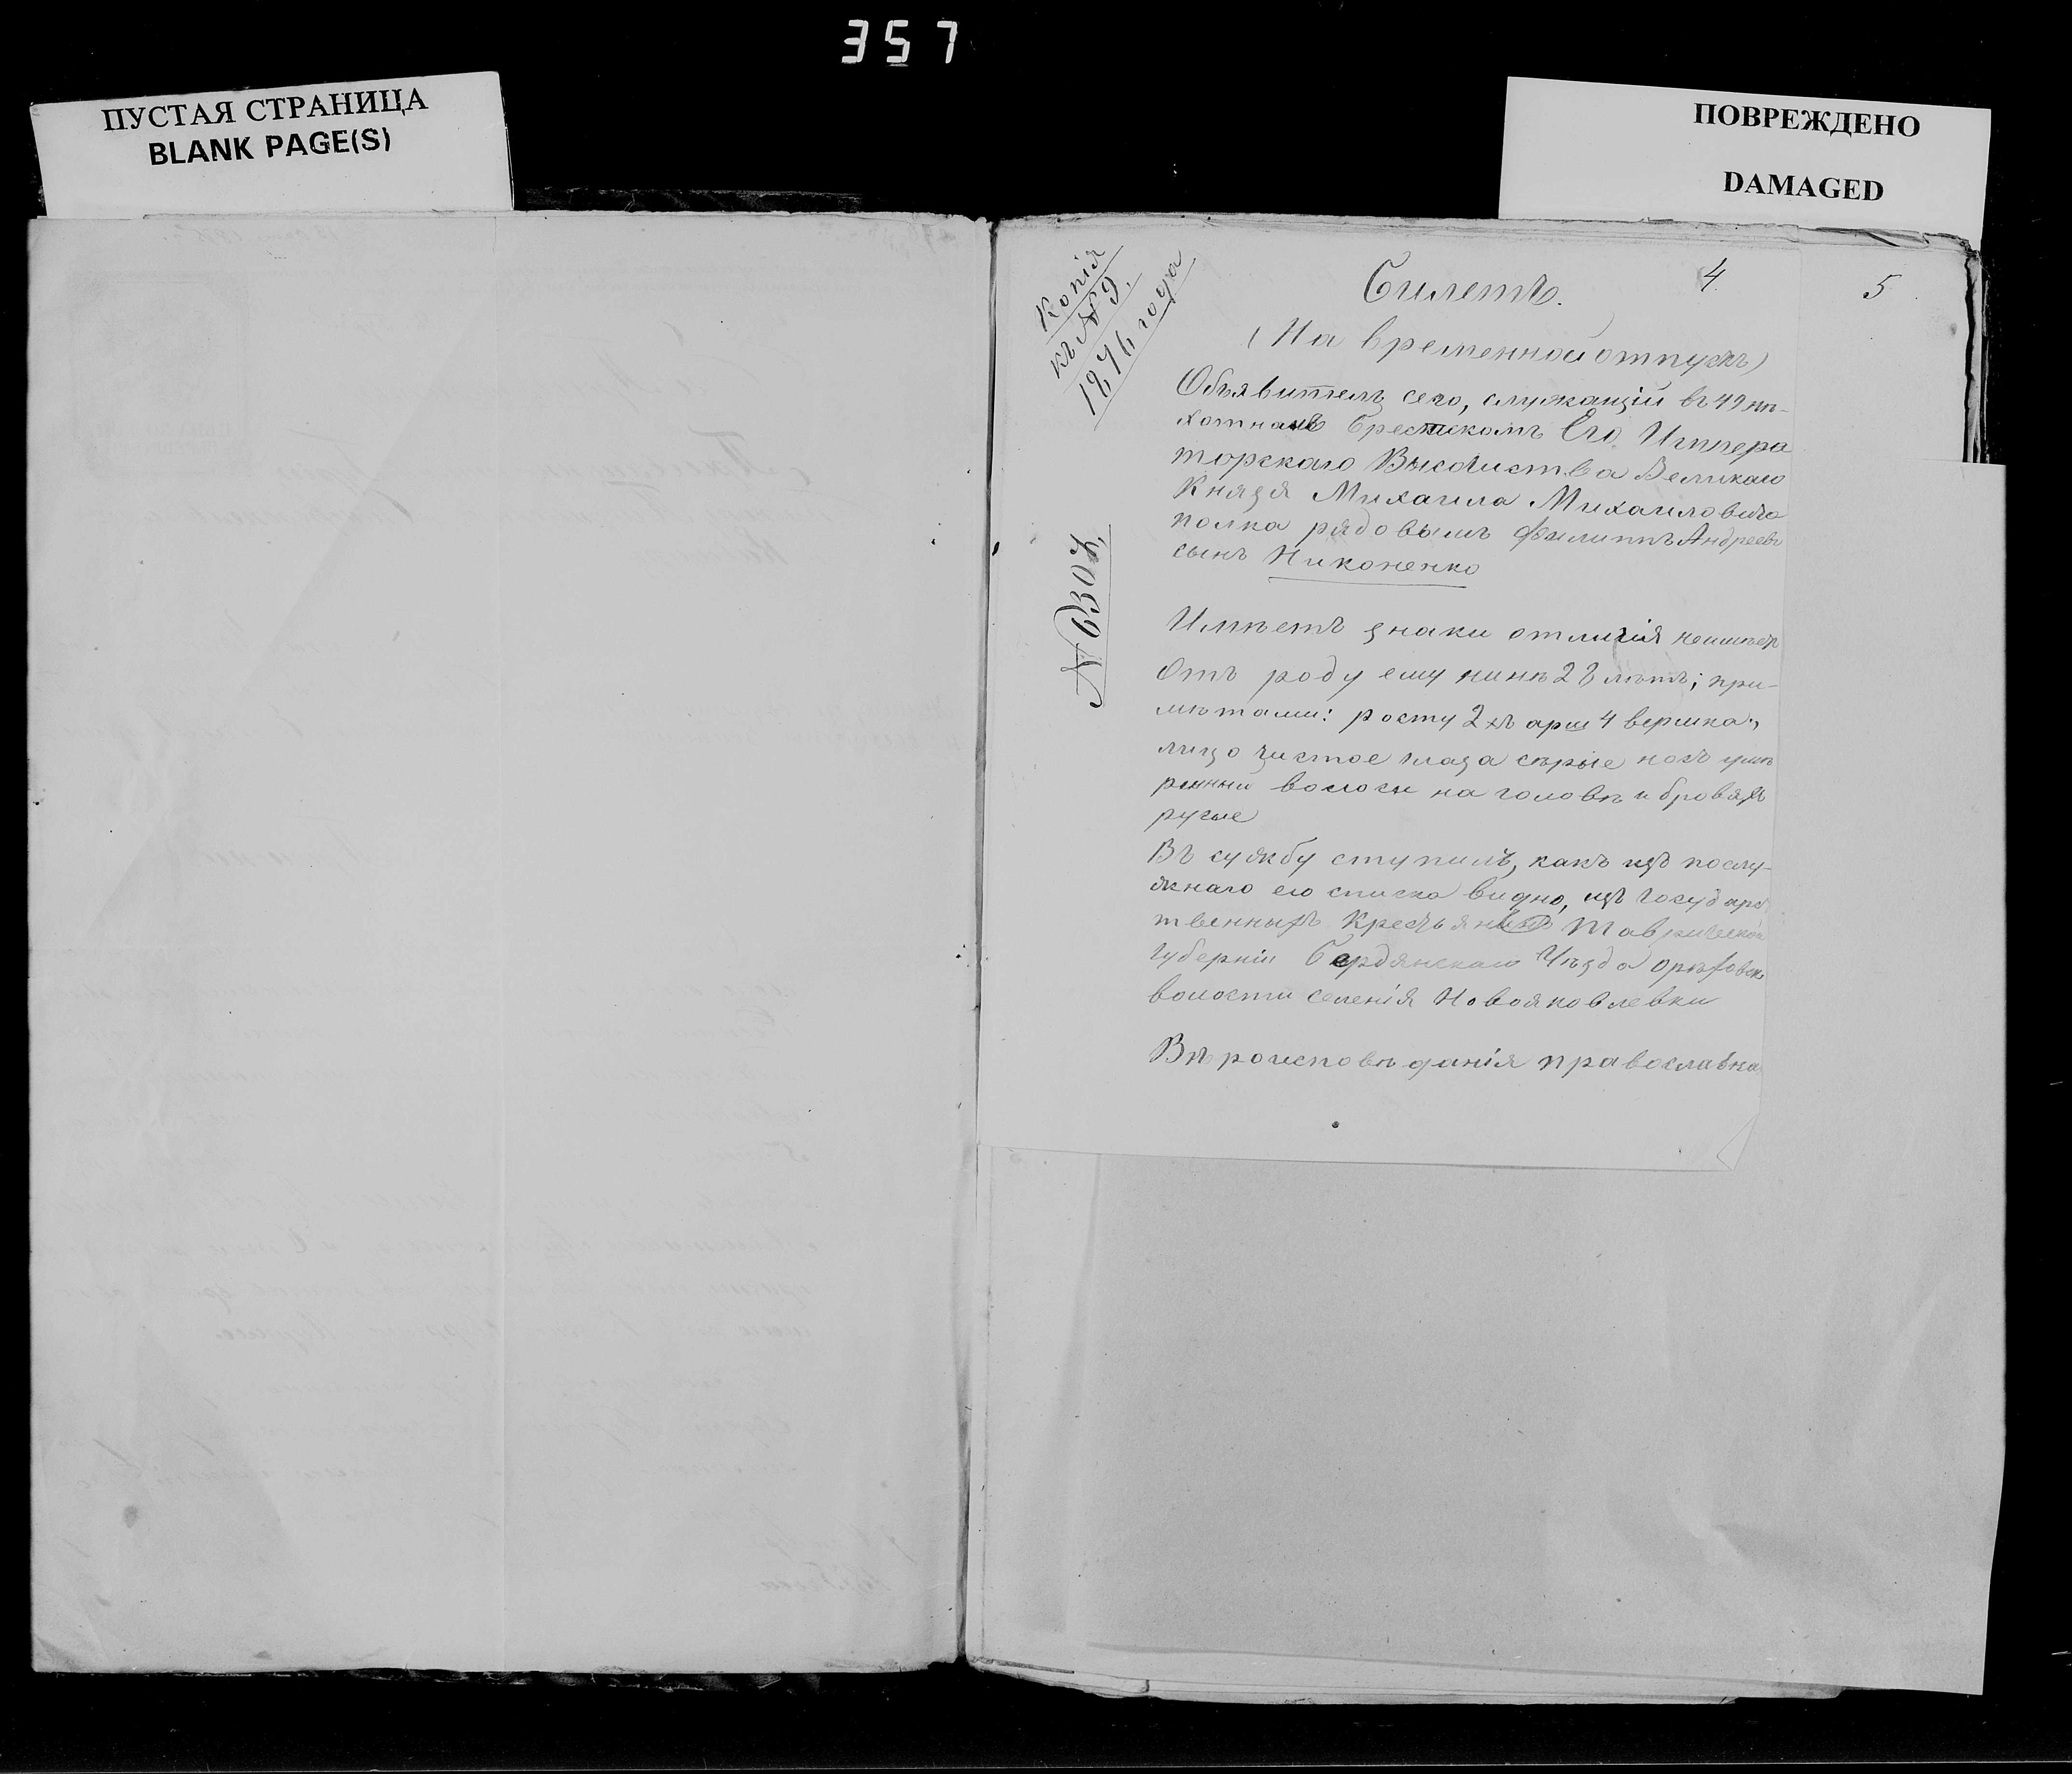 357
ПУСТАЯ СТРАНИЦА
BLANK PAGE(S)
ПОВРЕЖДЕНО
DAMAGED
Копія
къ № 9.
1876 года
№ 6304,
4
5
Билетъ.
(На временной отпускъ)
Объявитель сего, служащій въ 49 пѣ-
хотномъ Брестскомъ Его Импера
торскаго Высочества Великаго
Князя Михаила Михаиловича
полка рядовымъ Филиппъ Андреевъ
сынъ Никоненко
Имѣетъ знаки отличія неимѣетъ
Отъ роду ему нинѣ 28 лѣтъ; при-
мѣтами: росту 2хъ арш 4 вершка,
лицо чистое глаза сѣрые носъ умѣ
ренный волосы на головѣ и бровяхъ
русые
Въ сужбу ступилъ, какъ изъ послу-
жнаго его списка видно, изъ государс
твенныхъ Крестьянъ Таврической
губерніи Бердянскаго Уѣзда Орѣховск
волости селенія Новояковлевки
Вѣроисповѣданія православна